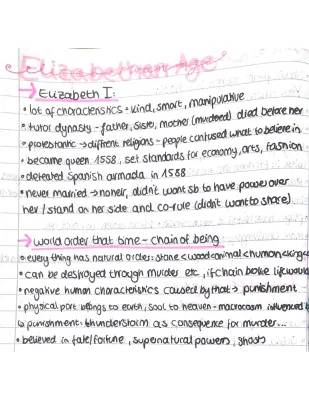 Elizabethan Age
→ Elizabeth I:
• lot of characteristics - kind, smart, manipulative
• tutor dynasty - father, sister, mother (murdered) died before her
• protestantic → diffrent religions - people confused what to believe in
• became queen 1558, set standards for economy, arts, fashion
• defeated Spanish armada in 1588
• never married → no heir, didn't want sb to have power over
her / stand on her side and co-rule (didn't want to share)
→ world order that time - chain of being
• every thing has natural order: stone < wood < animal < human < king <
• can be destroyed through murder etc, if chain broke
• negative human characteristics caused by that → punishment
• physical part belongs to earth, soul to heaven - macrocosm influenced
↳ punishment: thunderstorm as consequence for murder...
• believed in fate/fortune, supernatural powers, ghosts